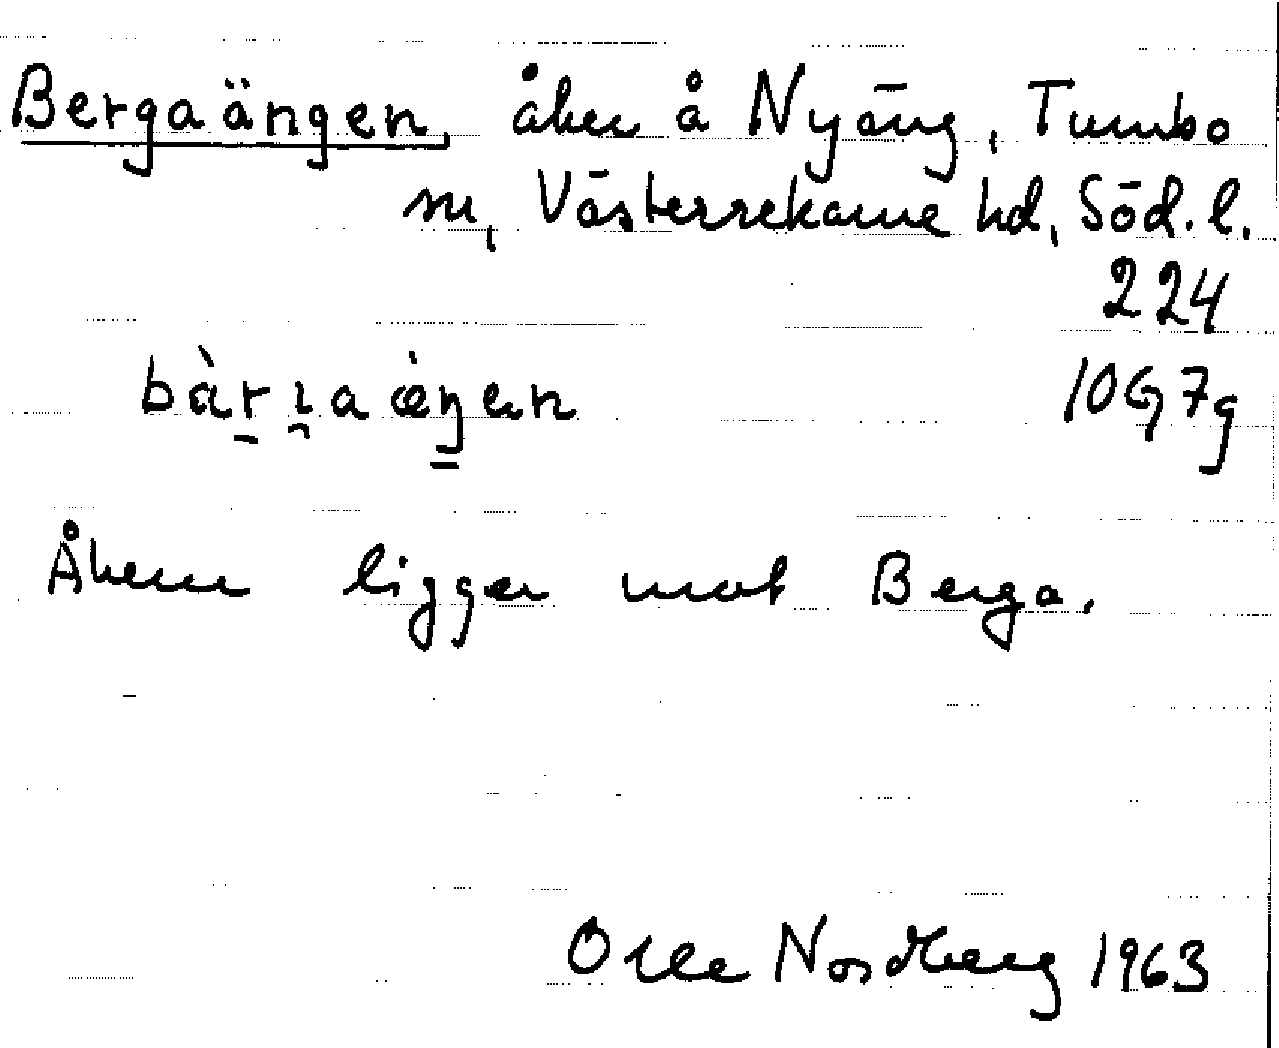 Bergaängen, åker å Nyäng, Tumbo
sn, Västerrekarne hd, Söd. l.
224
bàrɿaæ̀ŋen 10G7g
Åkern ligger mot Berga.
Olle Nordberg 1963